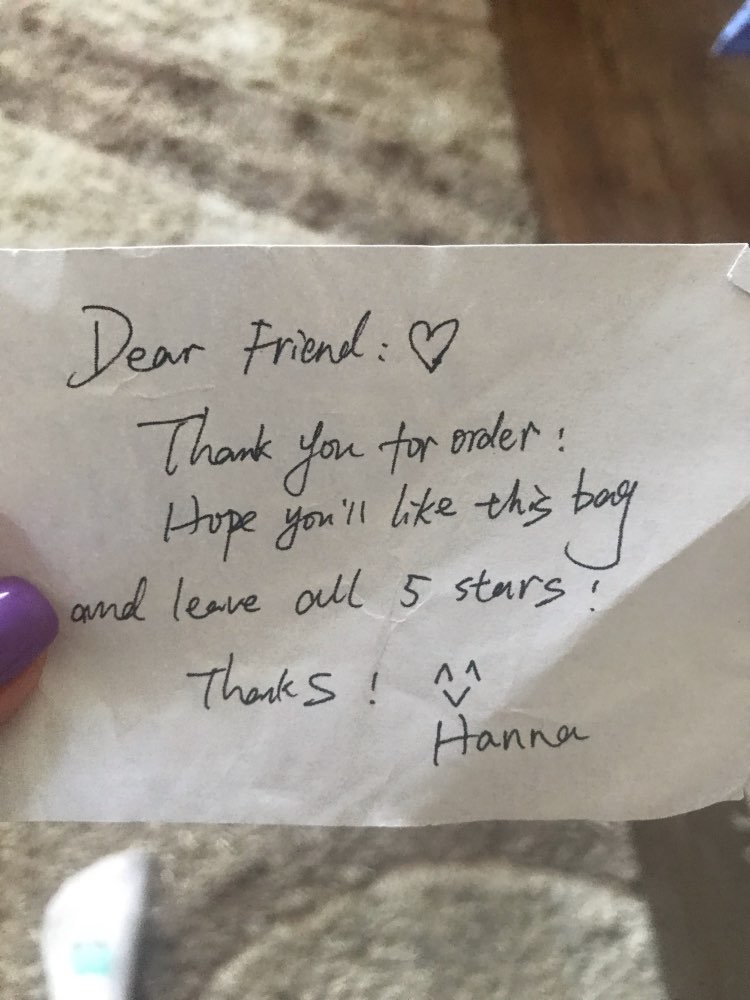 Dear Friend: ♡
Thank you for order!
Hope you'll like this bag
and leave all 5 stars!
Thanks! ^^
Hanna